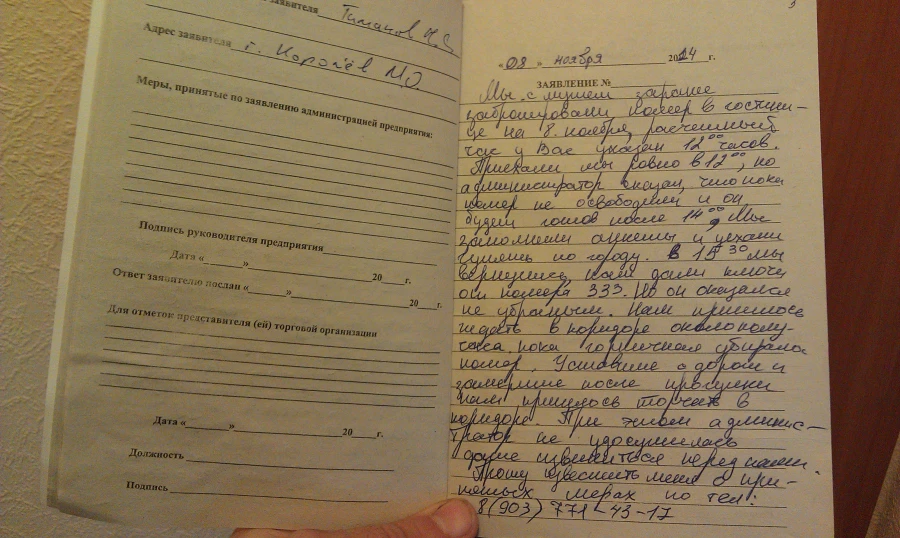 заявителя Тиманов К.С.
Адрес заявителя г. Королёв М.О.
Меры, принятые по заявлению администрацией предприятия:
Подпись руководителя предприятия
Дата «______» ______ 20____г.
Ответ заявителю послан «______» ______ 20____г.
Для отметок представителя (ей) торговой организации
Дата «______» ______ 20____г.
Должность
Подпись
« 08 » ноября 2014 г.
ЗАЯВЛЕНИЕ №
Мы с мужем заранее
забронировали номер в гостини-
це на 8 ноября, расчетный
час у Вас указан 12⁰⁰ часов.
Приехали мы ровно в 12⁰⁰, но
администратор сказал, что пока
номер не освободили и он
будет готов после 14⁰⁰. Мы
заполнили анкеты и уехали
гулять по городу. В 15³⁰ мы
вернулись, нам дали ключи
от номера 333. Но он оказался
не убранным. Нам пришлось
ждать в коридоре около полу-
часа, пока горничная убирала
номер. Уставшие с дороги и
замерзшие после прогулки
нам пришлось торчать в
коридоре. При этом админис-
тратор не удосужилась
даже извениться перед нами.
Прошу известить меня о при-
нятых мерах по тел:
8(903) 771-43-17